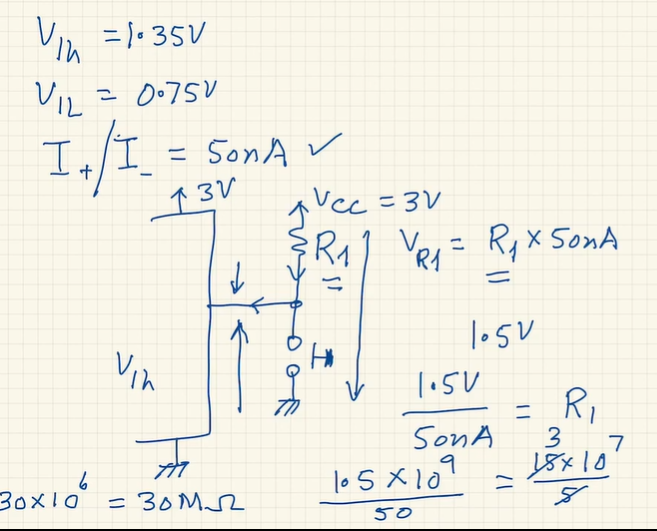 V_Ih = 1.35V
V_IL = 0.75V
I+/I- = 50nA ✓
3V
VCC = 3V
R1
V_R1 = R1 × 50nA
1.5V
V_Ih
1.5V / 50nA = R1
1.5 × 10^9 / 50 = 15 × 10^7 / 5
3
30×10^6 = 30MΩ